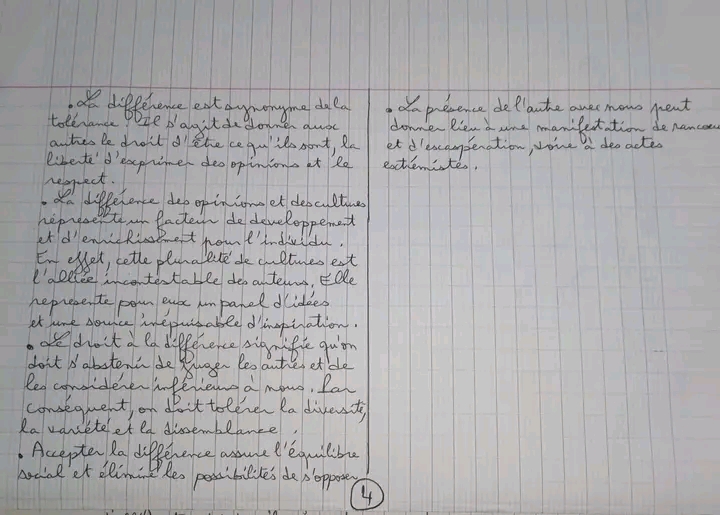 • La différence est synonyme de la
tolérance. Il s'agit de donner aux
autres le droit d'être ce qu'ils sont, la
liberté d'exprimer des opinions et le
respect.
• La différence des opinions et des cultures
représente un facteur de developpement
et d'enrichissment pour l'individu.
En effet, cette pluralité de cultures est
l'alliée incontestable des auteurs. Elle
represente pour eux un panel d'idées
et une source inépuisable d'inspiration.
• Le droit à la différence signifie qu'on
doit s'abstenir de juger les autres et de
les considérer inférieurs à nous. Par
conséquent, on doit tolérer la diversité,
la variété et la dissemblance.
• Accepter la différence assure l'équilibre
social et élimine les possibilités de s'opposer
• La présence de l'autre avec nous peut
donner lieu à une manifestation de rancoeur
et d'excaspération, voire à des actes
extrémistes.
4